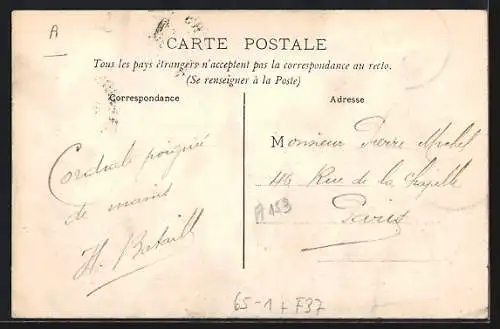 A
CARTE POSTALE
Tous les pays étrangers n'acceptent pas la correspondance au recto.
(Se renseigner à la Poste)
Correspondance
Adresse
Cordiale poignée
de mains
H. Bataill
Monsieur Pierre
46 Rue de la Chapelle
Paris
A153
65-1 + F37